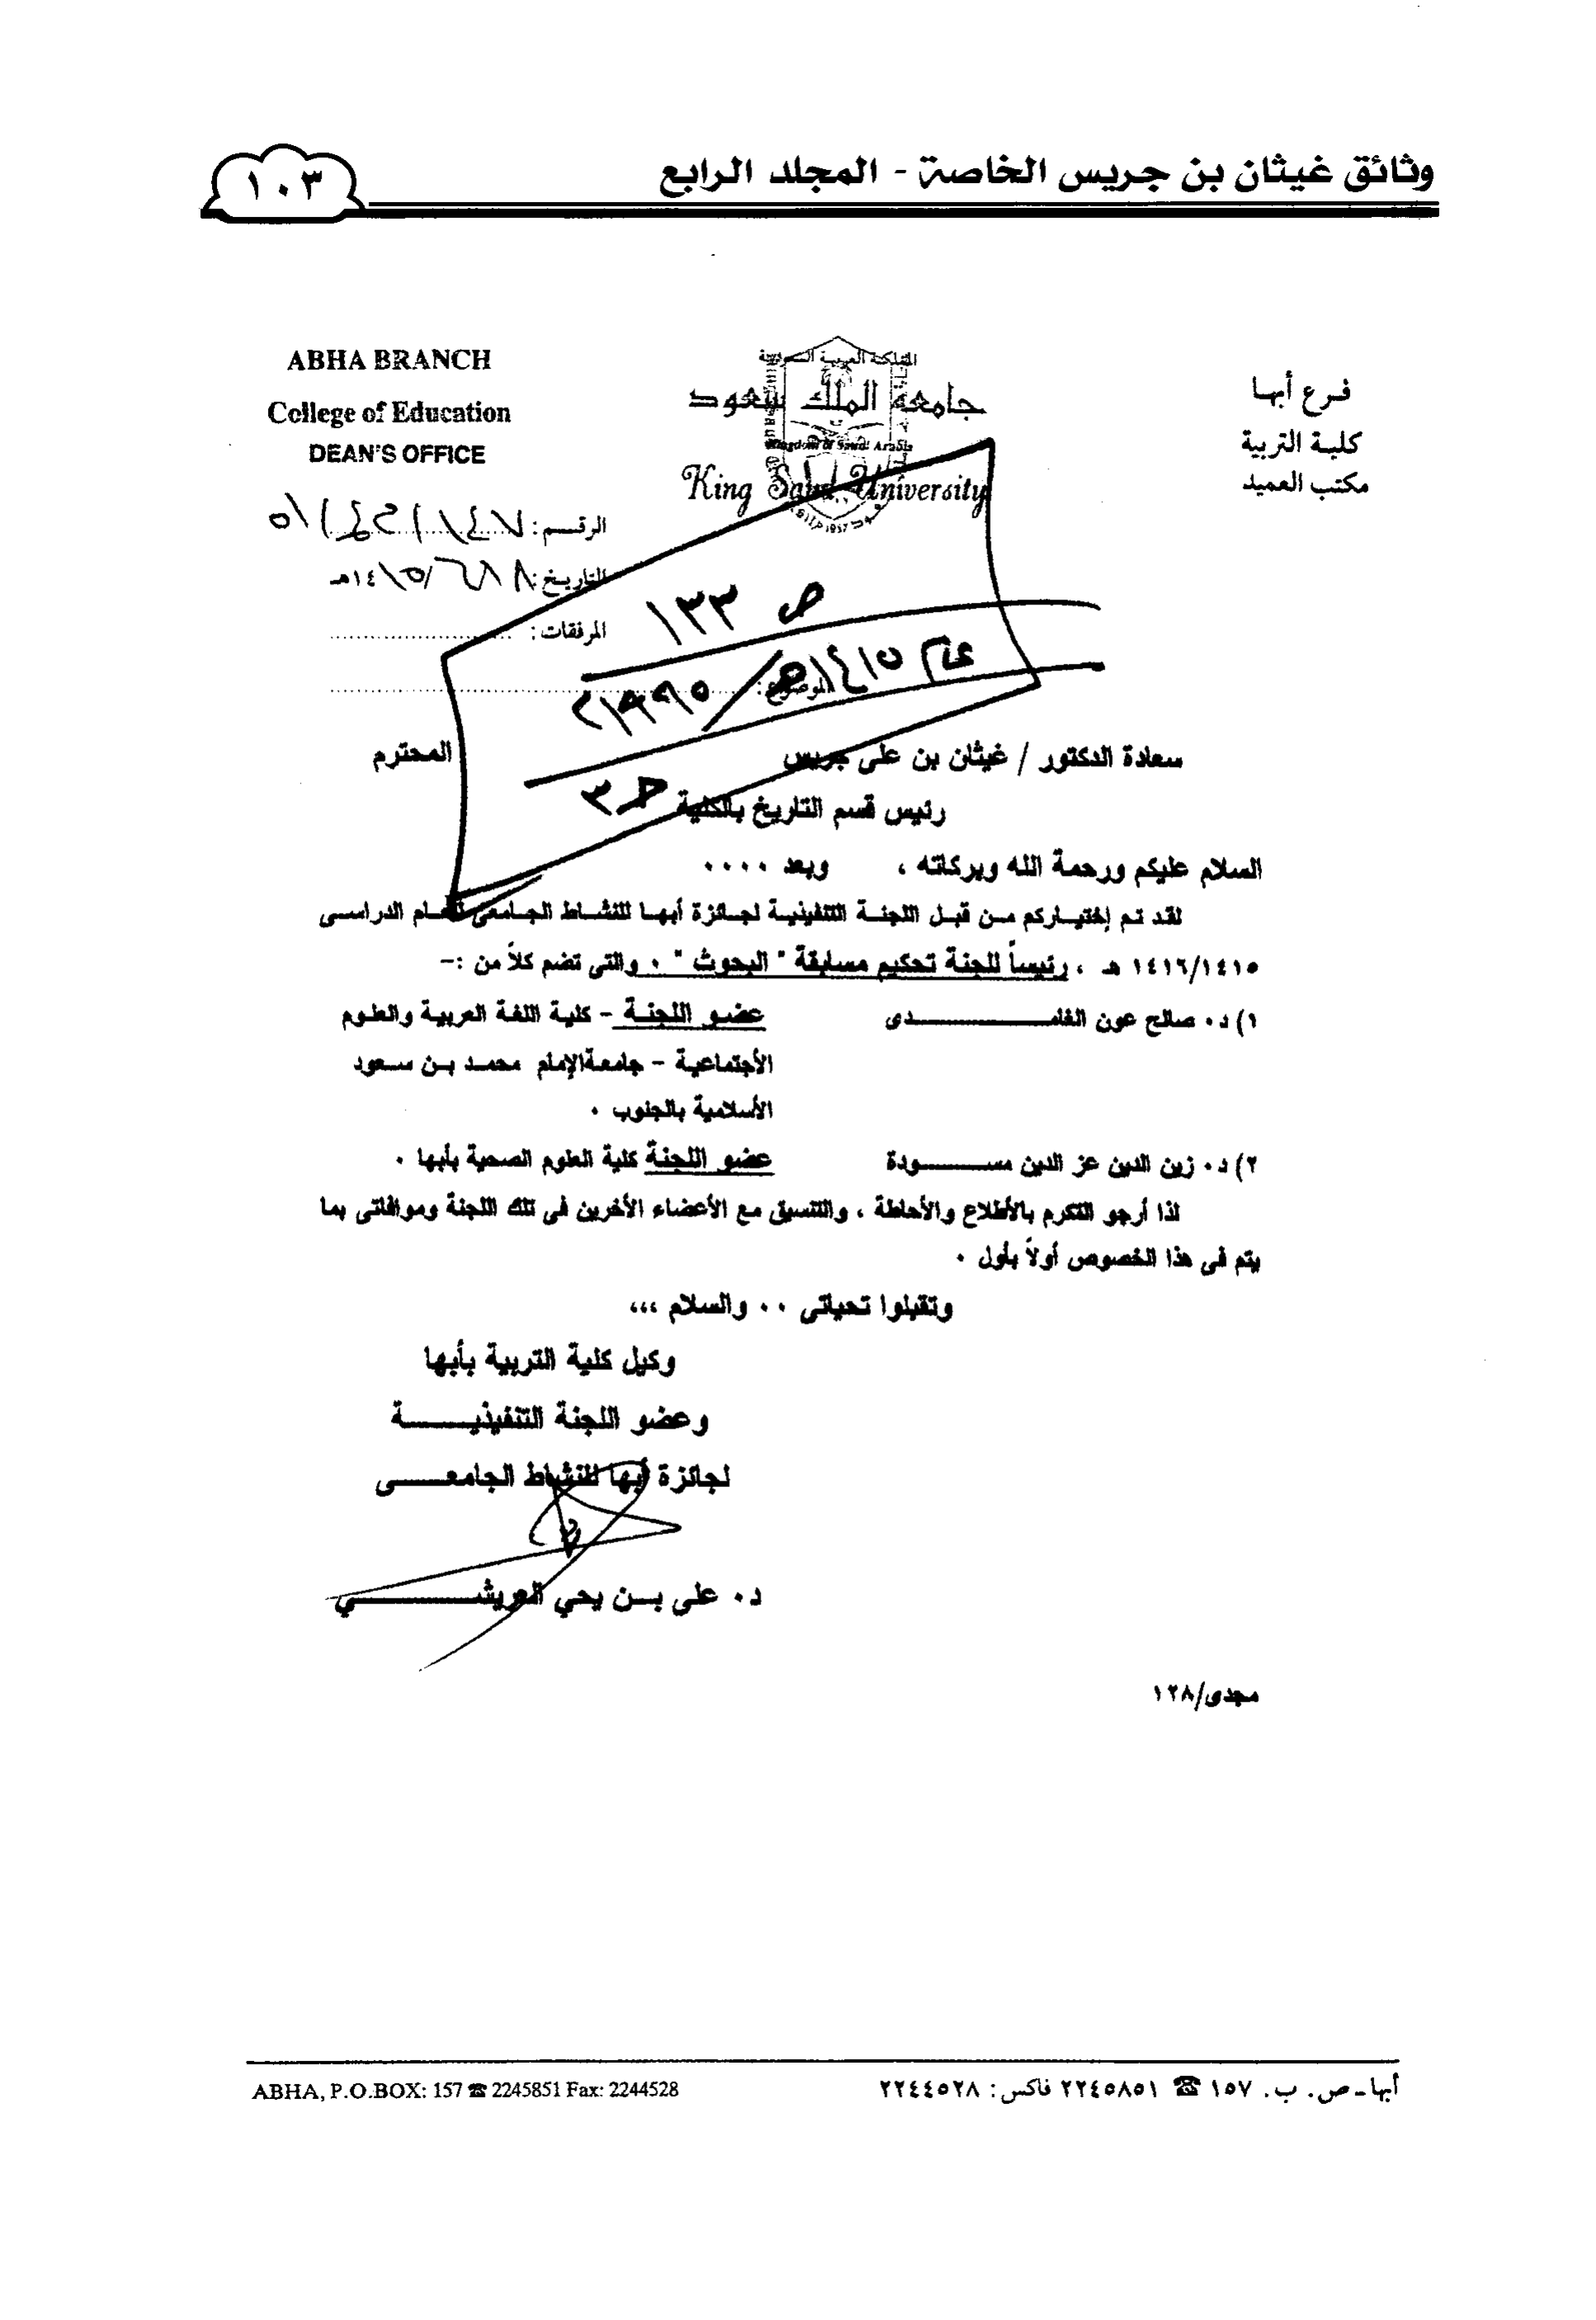 وثائق غيثان بن جريس الخاصة - المجلد الرابع
١٠٣
ABHA BRANCH
College of Education
DEAN'S OFFICE
المملكة العربية السعودية
جامعة الملك سعود
Kingdom of Saudi Arabia
King Saud University
فرع أبها
كلية التربية
مكتب العميد
الرقم:
التاريخ: ١٤هـ
المرفقات:
الموضوع:
ص ١٣٣
عام ١٤١٥هـ / ١٩٩٥م
ج٣
سعادة الدكتور / غيثان بن على جريس المحترم
رئيس قسم التاريخ بالكلية
السلام عليكم ورحمة الله وبركاته ، وبعد ٠٠٠٠
لقد تم إختياركم من قبل اللجنة التنفيذية لجائزة أبها للنشاط الجامعى للعام الدراسى
١٤١٦/١٤١٥ هـ ، رئيساً للجنة تحكيم مسابقة " البحوث " ٠ والتى تضم كلاً من :-
١) د٠ صالح عون الغامدى عضو اللجنة - كلية اللغة العربية والعلوم
الأجتماعية - جامعةالإمام محمد بن سعود
الأسلامية بالجنوب ٠
٢) د٠ زين الدين عز الدين مسودة عضو اللجنة كلية العلوم الصحية بأبها ٠
لذا أرجو التكرم بالأطلاع والأحاطة ، والتنسيق مع الأعضاء الأخرين فى تلك اللجنة وموافاتى بما
يتم فى هذا الخصوص أولاً بأول ٠
وتقبلوا تحياتى ٠٠ والسلام ،،،
وكيل كلية التربية بأبها
وعضو اللجنة التنفيذية
لجائزة أبها للنشاط الجامعى
د٠ على بن يحي العريشي
مجدى/١٢٨
ABHA, P.O.BOX: 157 ☎ 2245851 Fax: 2244528
أبها ـ ص. ب. ١٥٧ ☎ ٢٢٤٥٨٥١ فاكس: ٢٢٤٤٥٢٨